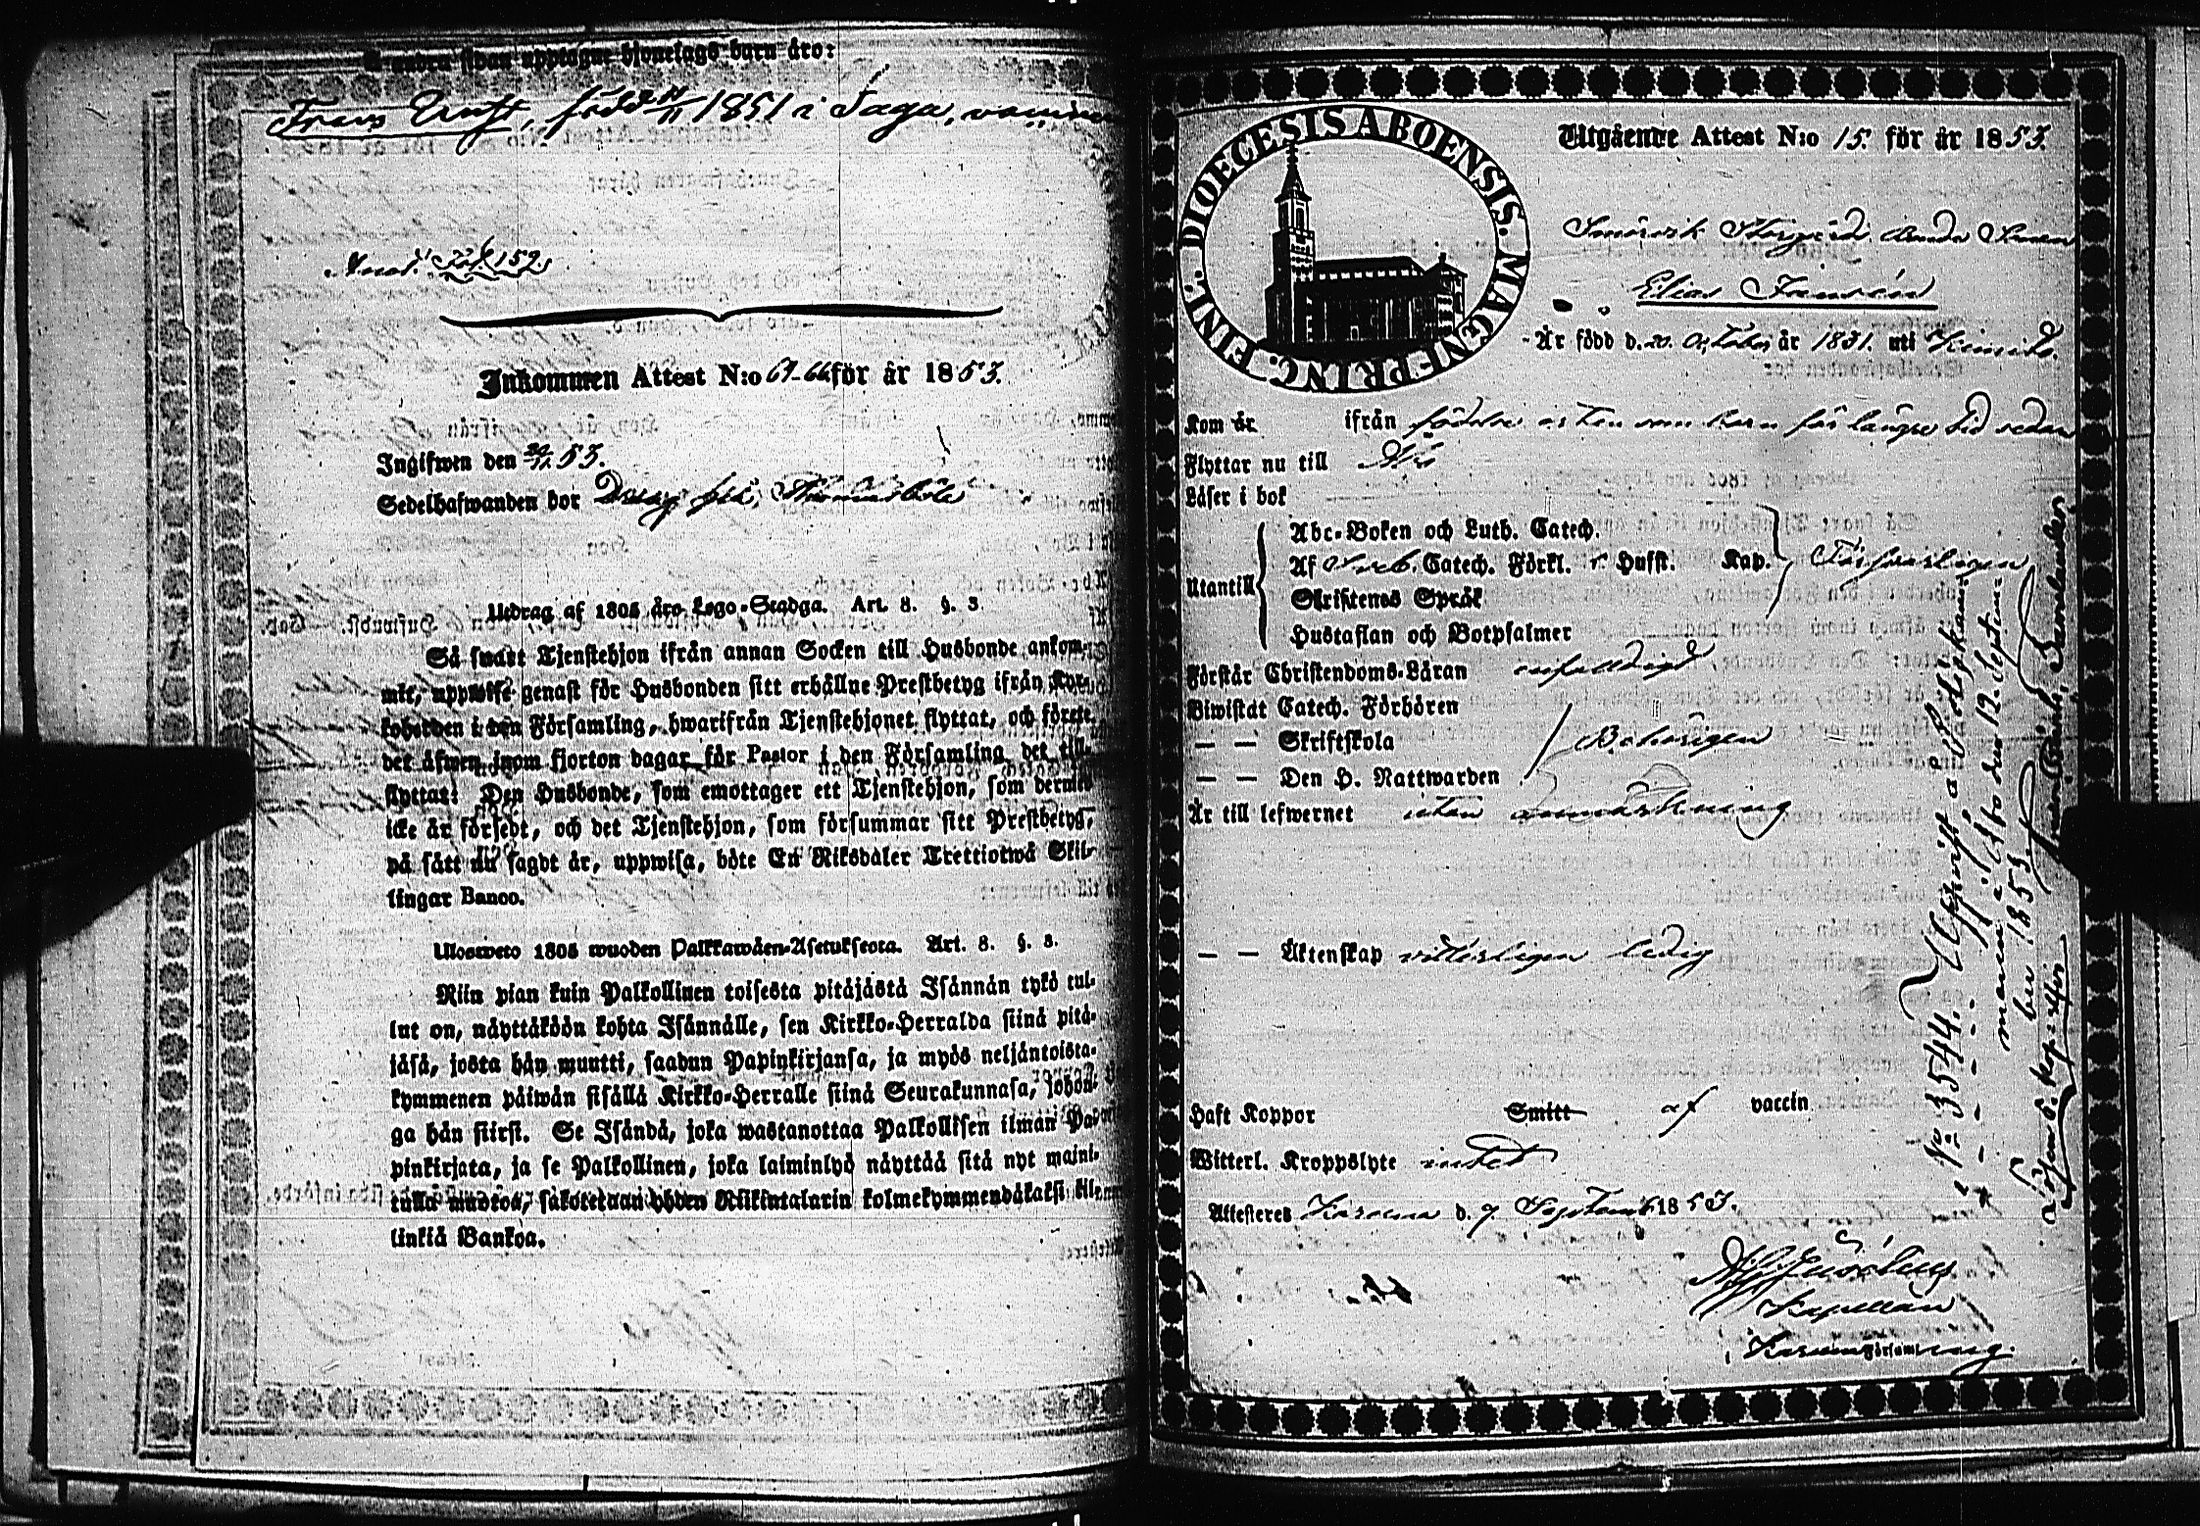 å andra sidan upptagne hjonelags barn äro:
Frans Ernst, född 11/11 1851 i Sagu,
Annot. Fol. 159.
Inkommen Attest N:o 67-66 för år 1853.
Ingifwen den 30/11 53.
Sedelhafwanden bor
Utdrag af 1805 års Lego-Stadga. Art. 8. §. 3.
Så snart Tjenstehjon ifrån annan Socken till Husbonde ankom-
mit, uppwise genast för Husbonden sitt erhållne Prestbetyg ifrån Kyr-
koherden i den Församling, hwarifrån Tjenstehjonet flyttat, och förete
det äfwen inom fjorton dagar för Pastor i den Församling det till-
flyttat: Den Husbonde, som emottager ett Tjenstehjon, som dermed
icke är försedt, och det Tjenstehjon, som försummar sitt Prestbetyg,
på sätt nu sagdt är, uppwisa, böte En Riksdaler Trettiotwå Skil-
lingar Banco.
Ulosweto 1805 wuoden Palkkawäen-Asetuksesta. Art. 8. §. 3.
Niin pian kuin Palkollinen toisesta pitäjästä Isännän tykö tul-
lut on, näyttäköön kohta Isännälle, sen Kirkko-Herralda siinä pitä-
jäsä, josta hän muutti, saadun Papinkirjansa, ja myös neljäntoista-
kymmenen päiwän sisällä Kirkko-Herralle siinä Seurakunnasa, johon-
ga hän siirsi. Se Isändä, joka wastanottaa Palkollisen ilman Pa-
pinkirjata, ja se Palkollinen, joka laiminlyö näyttää sitä nyt maini-
tulla muodoa, sakotetaan yhden Riikintalarin kolmekymmendäkaksi kil-
linkiä Bankoa.
DIOECESIS ABOENSIS. MAGNI PRINC. FINL.
Utgående Attest N:o 15 för år 1853.
Elias Jansén
Är född d. 20 October år 1831. uti Kimito
Kom år ifrån födelse orten för längre tid sedan
Flyttar nu till Åbo
Läser i bok
Utantill
Abc-Boken och Luth. Catech.
Af Sveb. Catech. Förkl. Hufst. Kap.
Skriftenes Språk
Hustaflan och Botpsalmer
Försvarligen
Förstår Christendoms-Läran enfaldigt
Biwistat Catech. Förhören
— — Skriftskola
— — Den H. Nattwarden
Behörigen
Är till lefwernet utan anmärkning
— — Äktenskap vitterligen ledig
Haft Koppor Smitt af vaccin
Witterl. Kroppslyte intet
Attesteres Karuna d. 9 Septemb 1853.
Kapellan
Karuna Församling.
N:o 3544. Uppvist å Sjömans-
i Åbo den 12 Septem-
ber 1853